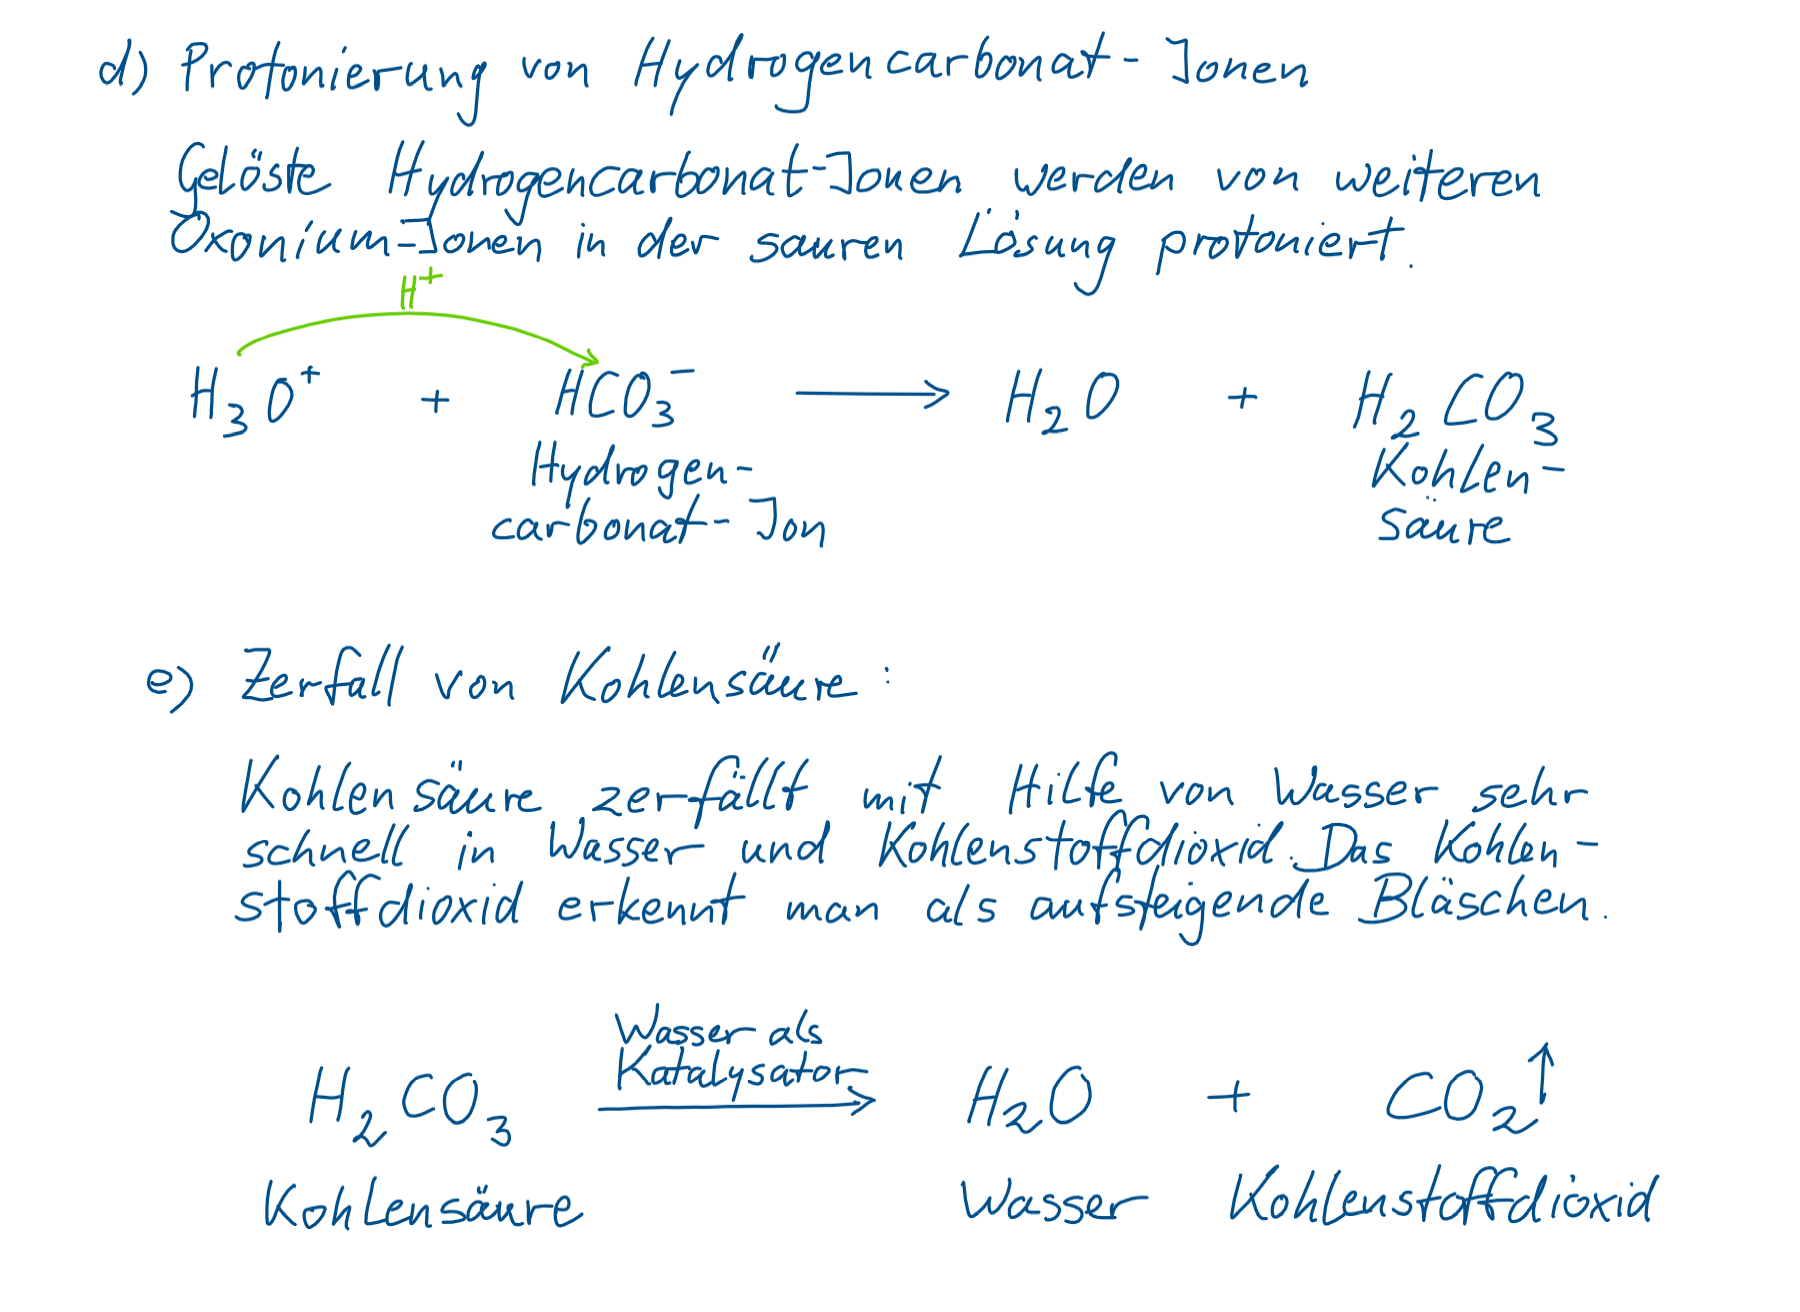 d) Protonierung von Hydrogencarbonat-Ionen
Gelöste Hydrogencarbonat-Ionen werden von weiteren
Oxonium-Ionen in der sauren Lösung protoniert.
H⁺
H₃O⁺ + HCO₃⁻ ⟶ H₂O + H₂CO₃
Hydrogen- Kohlen-
carbonat-Ion säure
e) Zerfall von Kohlensäure:
Kohlensäure zerfällt mit Hilfe von Wasser sehr
schnell in Wasser und Kohlenstoffdioxid. Das Kohlen-
stoffdioxid erkennt man als aufsteigende Bläschen.
Wasser als
Katalysator
H₂CO₃ ⟶ H₂O + CO₂↑
Kohlensäure Wasser Kohlenstoffdioxid